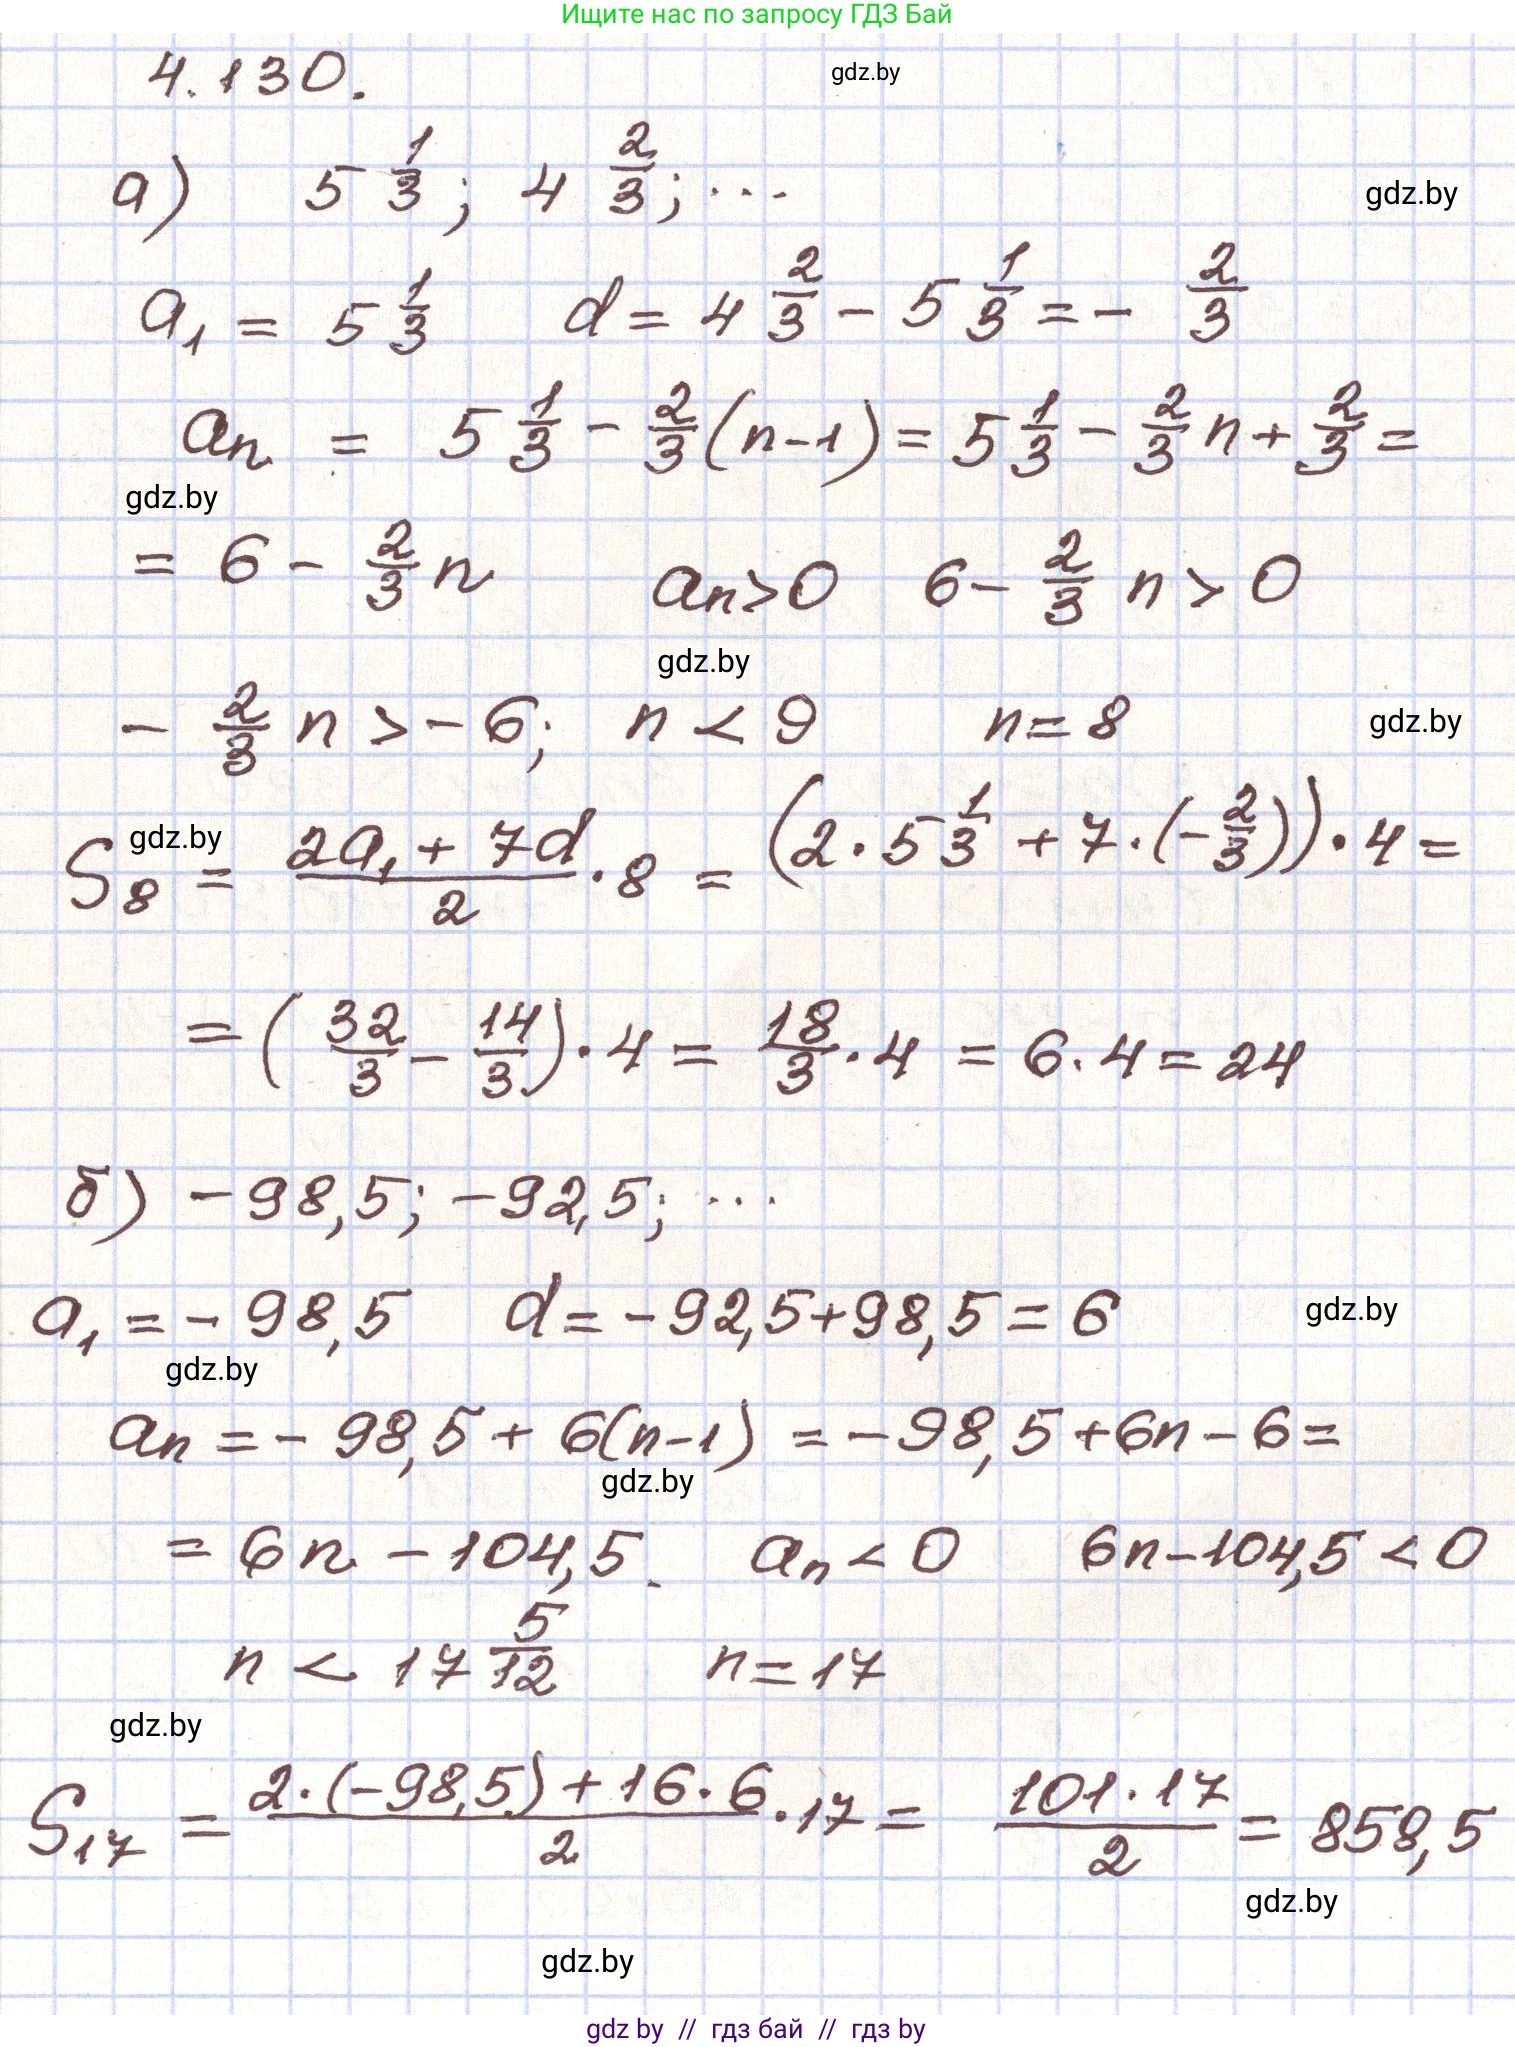 Ищите нас по запросу ГДЗ Бай
4.130.
gdz.by
а) 5 1/3; 4 2/3; ...
gdz.by
a₁ = 5 1/3 d = 4 2/3 - 5 1/3 = - 2/3
aₙ = 5 1/3 - 2/3 (n-1) = 5 1/3 - 2/3 n + 2/3 =
gdz.by
= 6 - 2/3 n aₙ > 0 6 - 2/3 n > 0
gdz.by
- 2/3 n > - 6; n < 9 n = 8
gdz.by
gdz.by
S₈ = (2a₁ + 7d)/2 · 8 = (2 · 5 1/3 + 7 · (- 2/3)) · 4 =
= (32/3 - 14/3) · 4 = 18/3 · 4 = 6 · 4 = 24
б) -98,5; -92,5; ...
a₁ = -98,5 d = -92,5+98,5 = 6
gdz.by
gdz.by
aₙ = -98,5 + 6(n-1) = -98,5 + 6n - 6 =
gdz.by
= 6n - 104,5. aₙ < 0 6n - 104,5 < 0
n < 17 5/12 n = 17
gdz.by
S₁₇ = (2·(-98,5) + 16·6)/2 · 17 = (101·17)/2 = 858,5
gdz.by
gdz.by
gdz by // гдз бай // гдз by